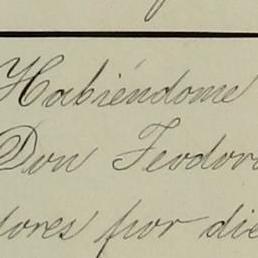 Habiéndome
Don Feodoro
dores por die